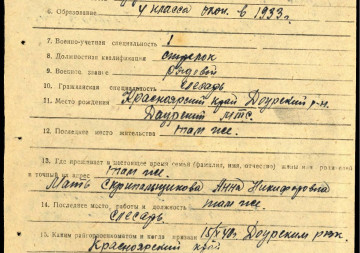 6. Образование 4 класса окон. в 1933г.
7. Военно-учетная специальность 1
8. Должностная квалификация стрелок
9. Военное звание Рядовой
10. Гражданская специальность слесарь
11. Место рождения Красноярский край Даурский р-н.
Даурский мтс.
12. Последнее место жительства там же.
13. Где проживает в настоящее время семья (фамилия, имя, отчество) жены или родителей
и точный их адрес там же.
Мать Скрипальщикова Анна Никифоровна
14. Последнее место работы и должность там же
Слесарь.
15. Каким райвоенкоматом и когда призван 15/X 40г. Даурским рвк.
Красноярский край